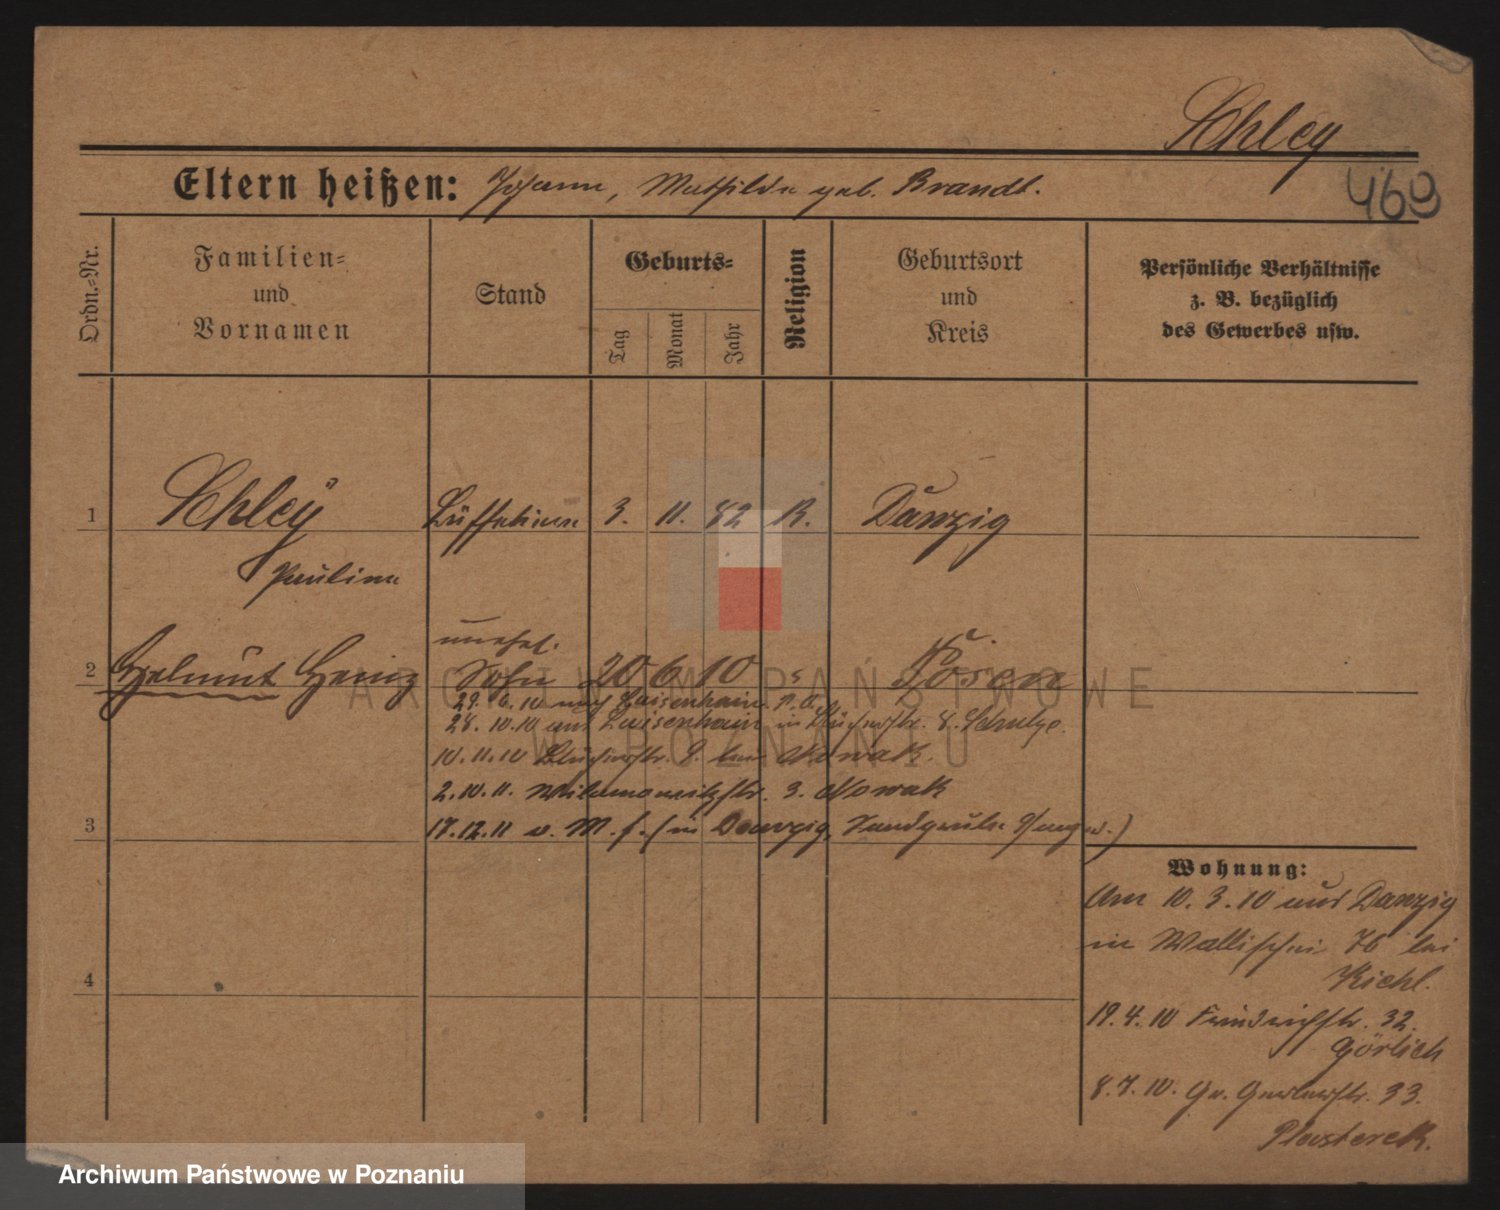 Schley
469
Eltern heißen: Johann, Mathilde geb. Brandt.
Ordn.-Nr.
Familien-
und
Vornamen
Stand
Geburts-
Tag
Monat
Jahr
Religion
Geburtsort
und
Kreis
Persönliche Verhältnisse
z. B. bezüglich
des Gewerbes usw.
1 Schley Büffetiere 3. 11. 82 K. Danzig
Pauline
unehel.
2 Helmut Heinz Sohn 20 6 10 " Posen
29. 6. 10 nach Luisenhain P. O.
28. 10. 10 aus Luisenhain in Blücherstr. 8. Schulze.
10. 11. 10 Blücherstr. 9. bei Nowak.
2. 10. 11. Wilamowitzstr. 3. Nowak
3 17. 12. 11 v. M. f. (in Danzig, Sandgrube
4
Wohnung:
Am 10. 3. 10 aus Danzig
in Wallischei 76 bei
Kiehl.
19. 4. 10 Friedrichstr. 32.
Görlich
8. 7. 10. Gr. Gerberstr. 33.
Plusterek.
ARCHIWUM PAŃSTWOWE
W POZNANIU
Archiwum Państwowe w Poznaniu